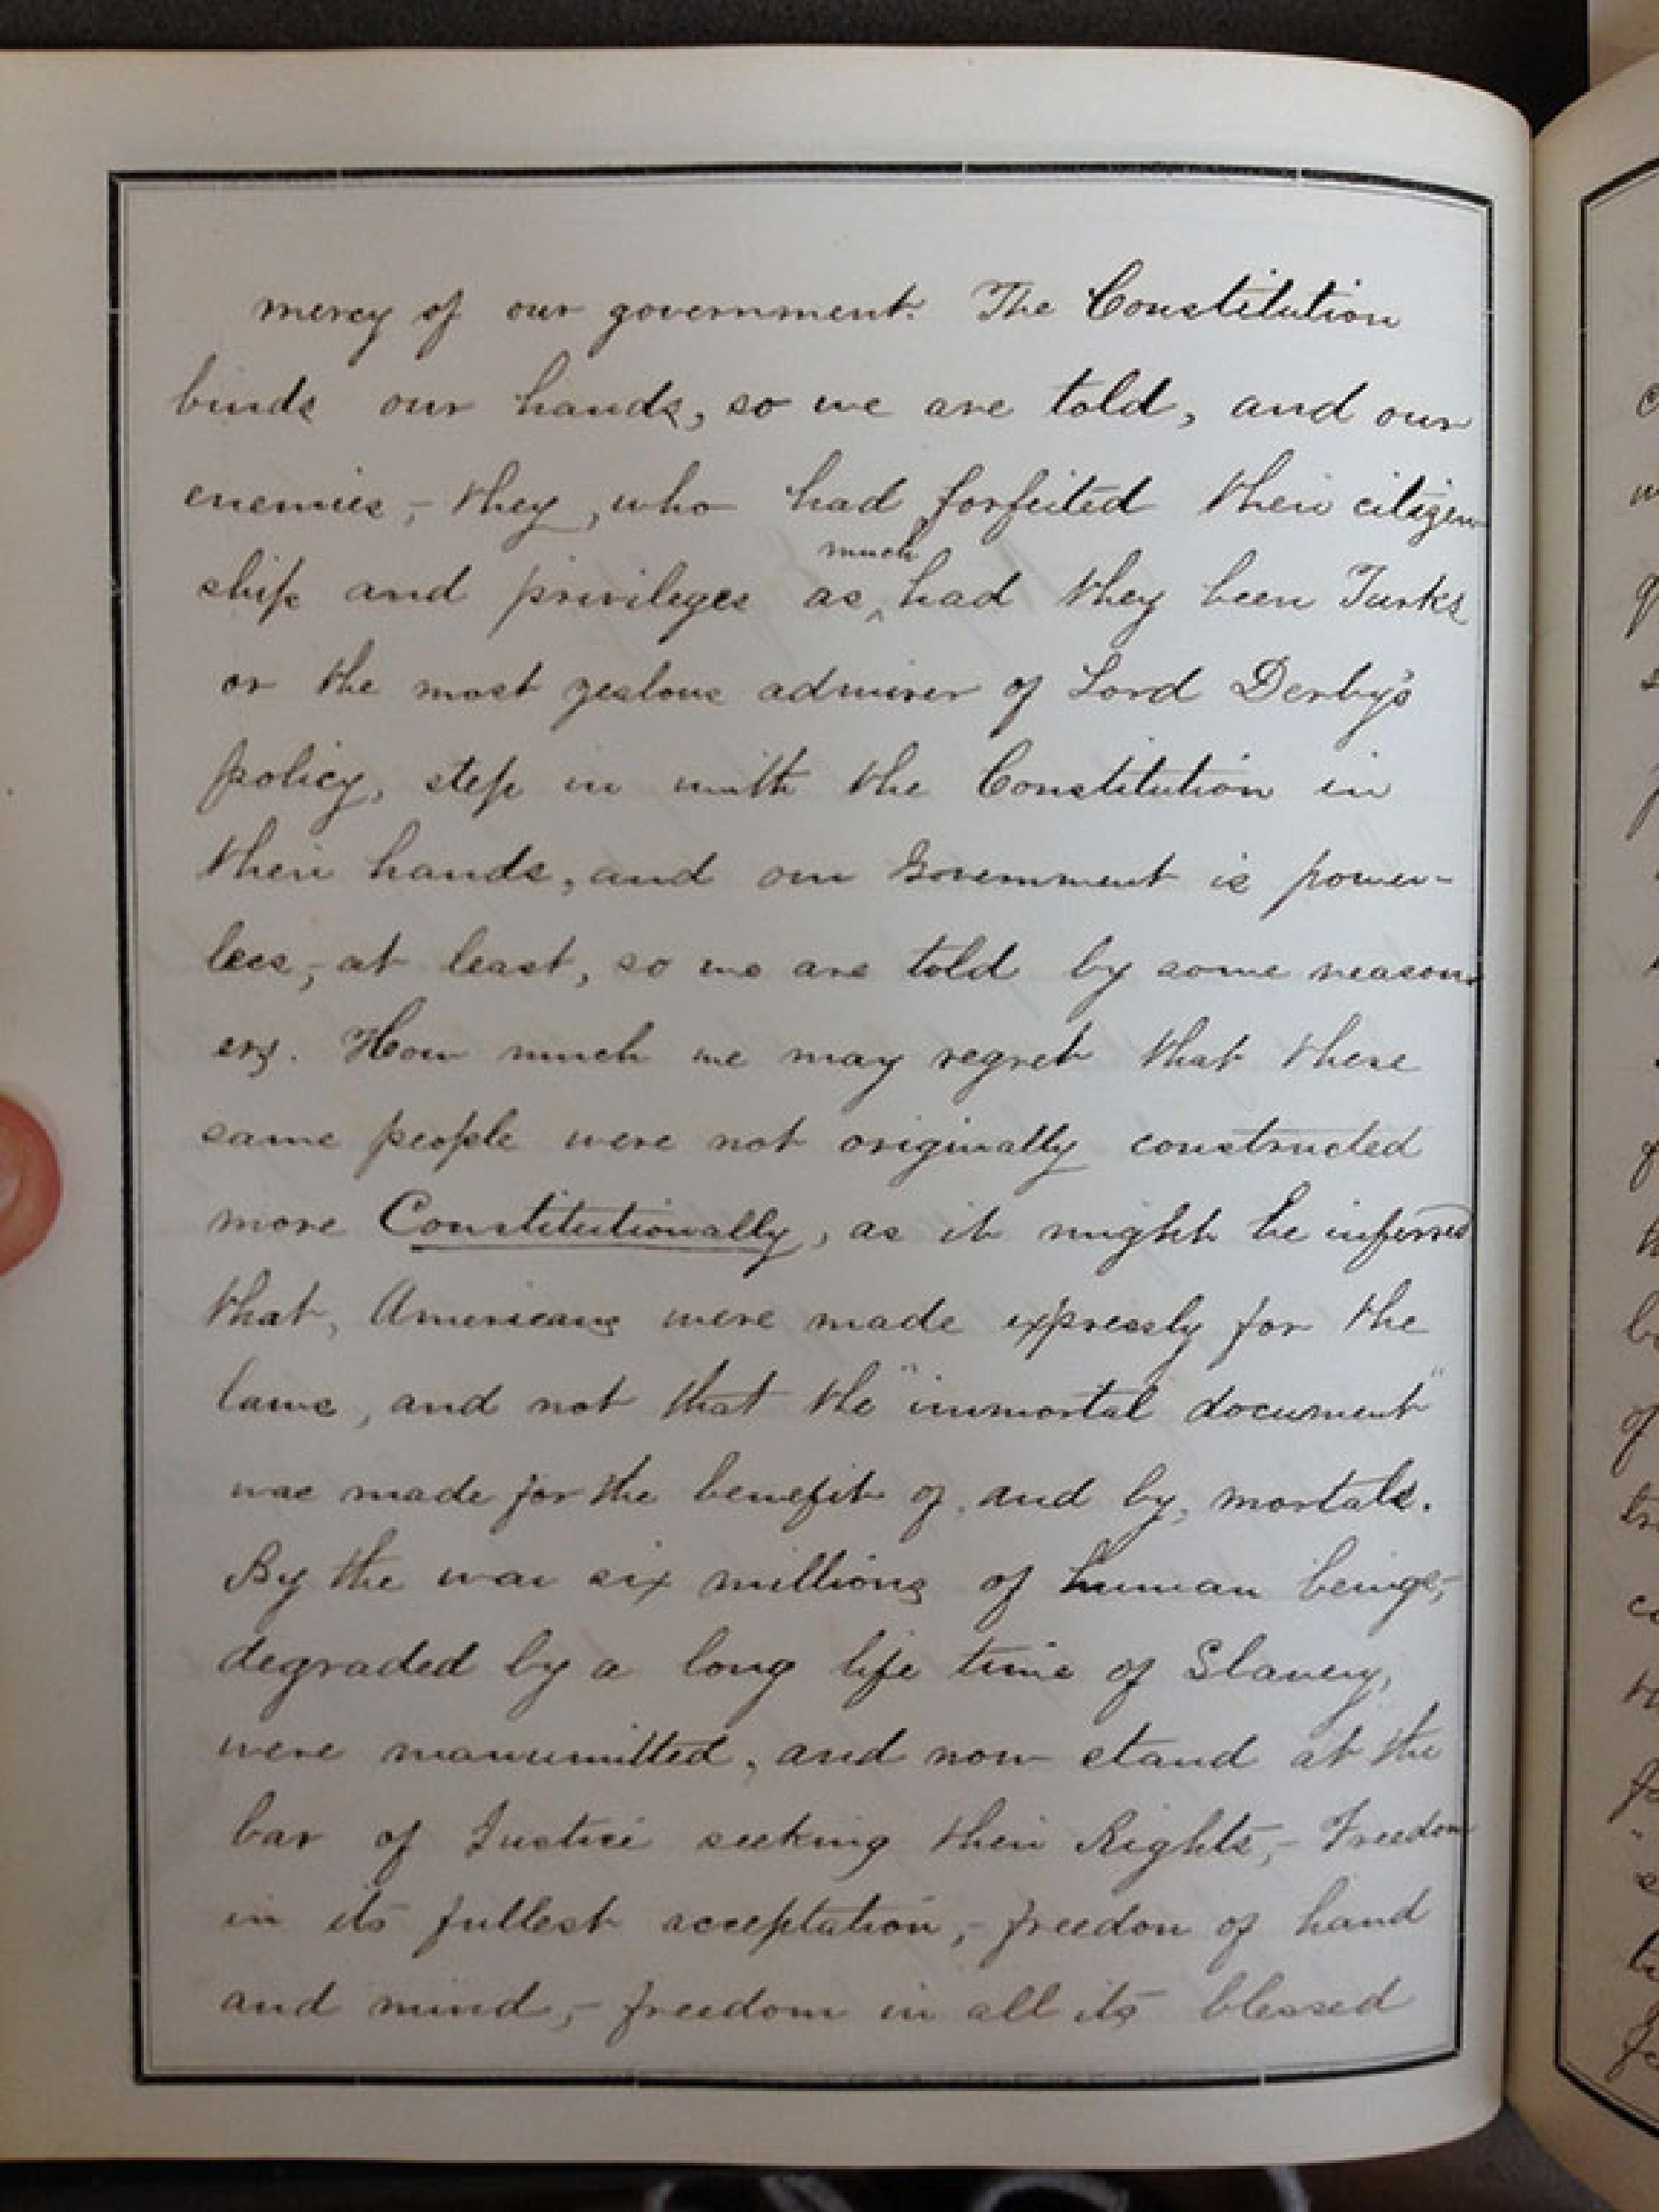 mercy of our government. The Constitution
binds our hands, so we are told, and our
enemies,- they, who had forfeited their citizen
ship and privileges as ^much had they been Turks
or the most zealous admirer of Lord Derby's
policy, step in with the Constitution in
their hands, and our Government is power-
less,- at least, so we are told by some reason-
ers. How much we may regret that these
same people were not originally constructed
more Constitutionally, as it might be inferred
that, Americans were made expressly for the
laws, and not that the "immortal document"
was made for the benefit of, and by, mortals.
By the war six millions of human beings,-
degraded by a long life time of Slavery,
were manumitted, and now stand at the
bar of Justice seeking their Rights,- Freedom
in its fullest acceptation,- freedon of hand
and mind,- freedom in all its blessed